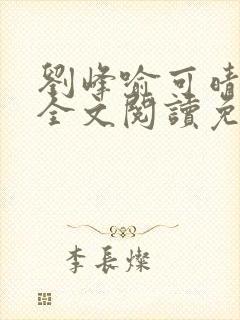 劉峰喻可晴
全文閱讀免
李長燦